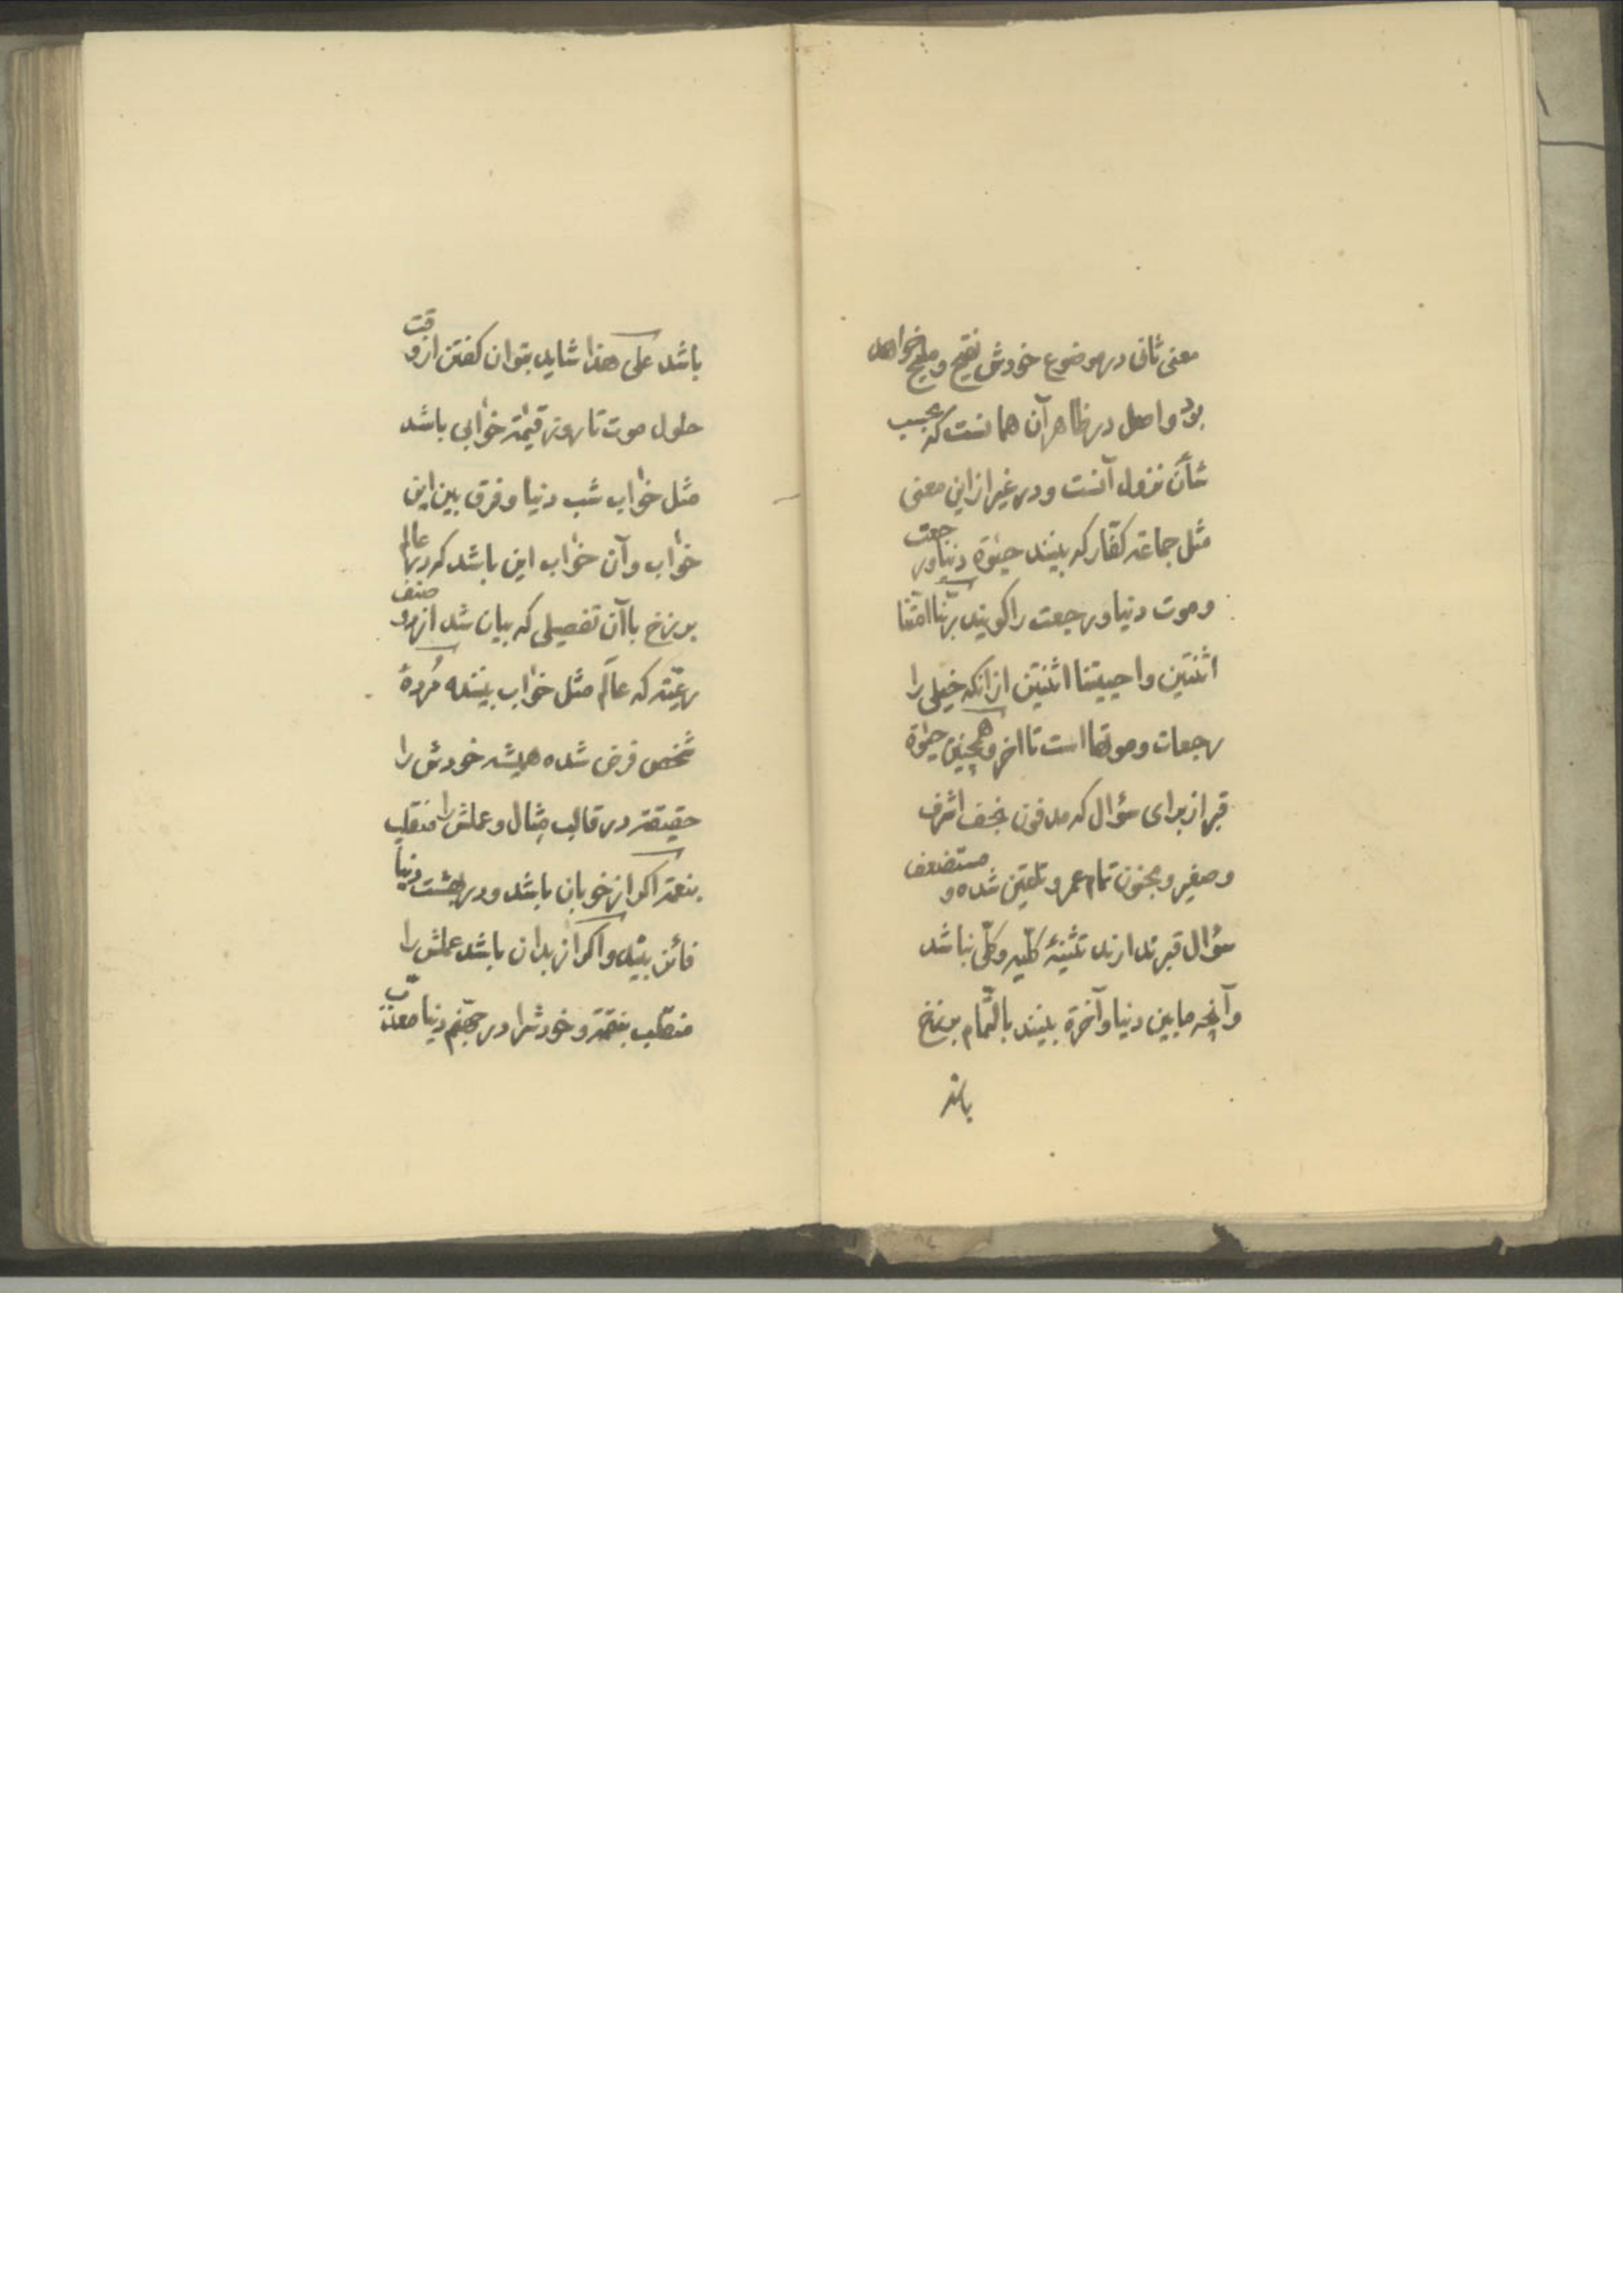 معنی ثانی در موضوع خودش نقیح و ملیح خواهد
بود و اصل در ظاهر آن همانست که بحسب
شأن نزول آنست و در غیر از این معنی
مثل جماعه کفّار که بینند حیوة دنیا و رجعت
و موت دنیا و رجعت را گویند ربّنا امتّنا
اثنتین و احییتنا اثنتین از انکه خیلی را
رجعات و موتها است تا اخر و همچنین حیوة
قبر از برای سؤال که مدفون بنجف اشرف
و صغیر و مجنون تمام عمر و تلقین شده و مستضعف
سؤال قبر ندارند تثنیهٔ کلیه و کلّی نباشد
و آنچه مابین دنیا و آخرة بینند بالتّمام برزخ
باشد
باشد علی هذا شاید بتوان کفتن از وقت
حلول موت تا روز قیمة خوابی باشد
مثل خواب شب دنیا و فرق بین این
خواب و آن خواب این باشد که در عالم
برزخ با آن تفصیلی که بیان شد از هر دو صنف
رعیّته که عالَم مثل خواب بیننده مُردهٔ
شخص فرض شده همیشه خودش را
حقیقة در قالب مثال و عملش را منقلب
بنعمة اکر از خوبان باشد و در بهشت دنیا
فائز بیند و اکر از بدان باشد عملش را
منقلب بنقمة و خودشرا در جهنّم دنیا معذّب